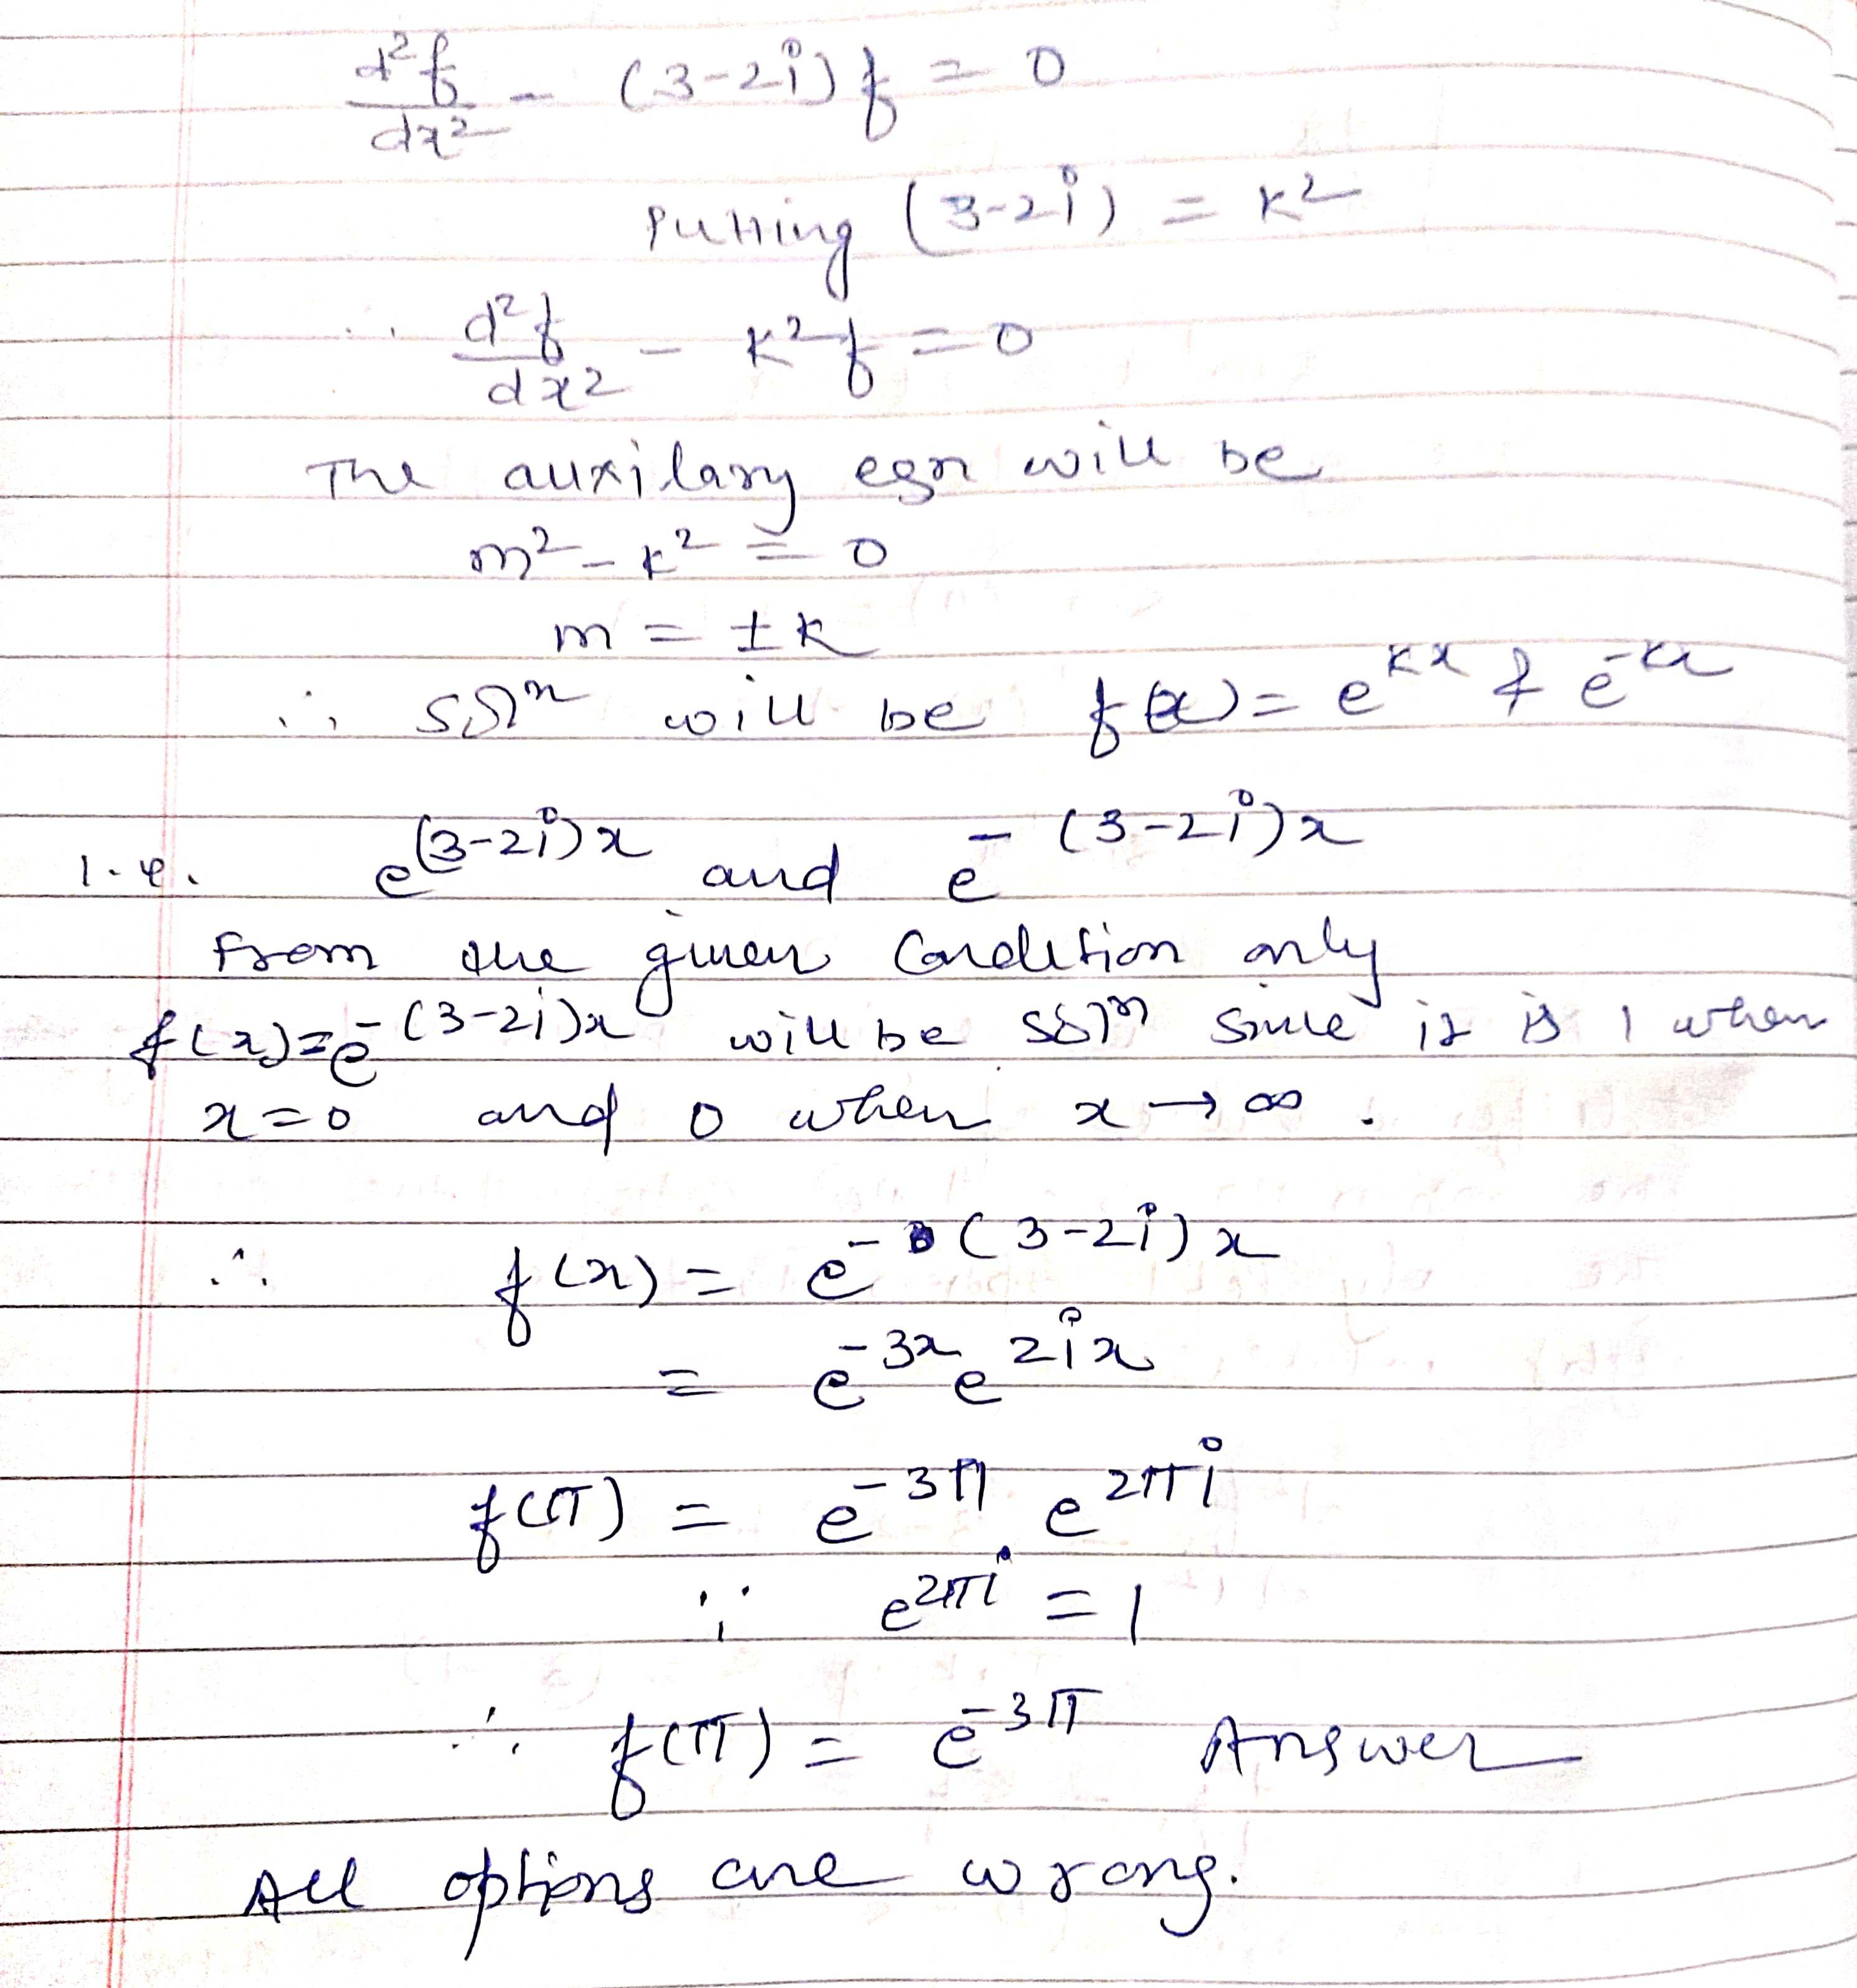 d²f/dx² - (3-2i) f = 0
Putting (3-2i) = k²
∴ d²f/dx² - k² f = 0
The auxilary eqn will be
m² - k² = 0
m = ±k
∴ solⁿ will be f(x) = e^{kx} & e^{-kx}
i.e. e^{(3-2i)x} and e^{-(3-2i)x}
From the given condition only
f(x) = e^{-(3-2i)x} will be solⁿ since it is 1 when
x=0 and 0 when x → ∞.
∴ f(x) = e^{-(3-2i)x}
= e^{-3x} e^{2ix}
f(π) = e^{-3π} e^{2πi}
∵ e^{2πi} = 1
∴ f(π) = e^{-3π} Answer
All options are wrong.